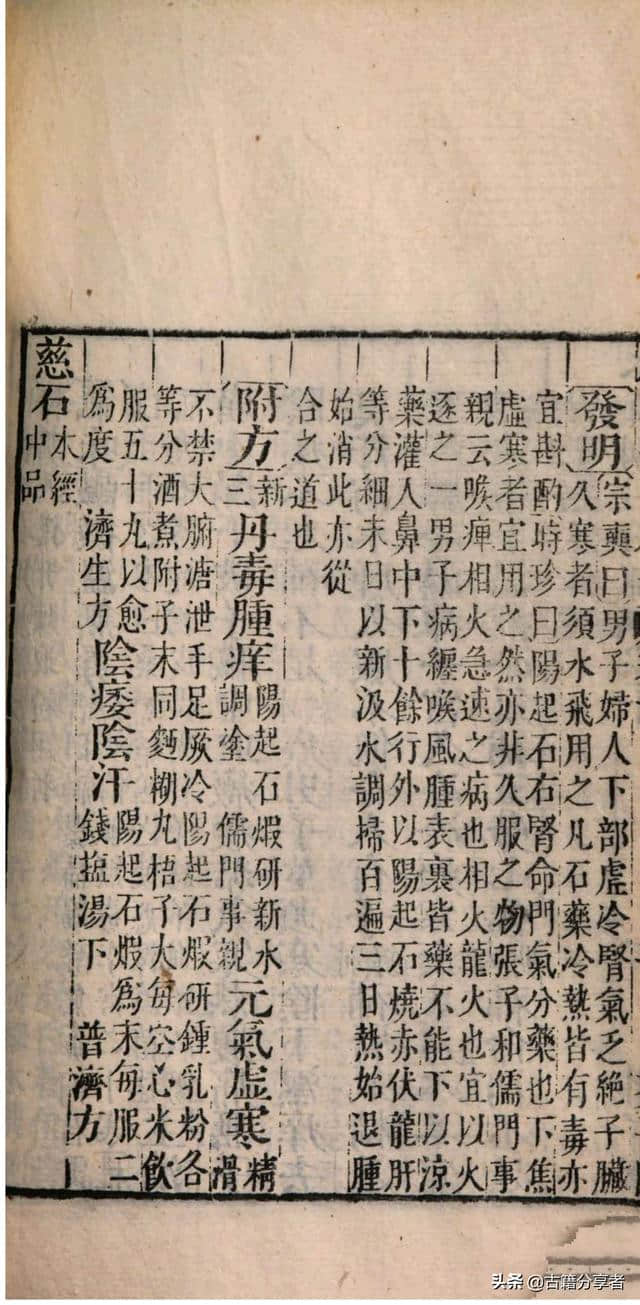 發明宗奭曰男子婦人下部虛冷腎氣乏絕子臟
久寒者須水飛用之凡石藥冷熱皆有毒亦
宜斟酌時珍曰陽起石右腎命門氣分藥也下焦
虛寒者宜用之然亦非久服之物張子和儒門事
親云喉痺相火急速之病也相火龍火也宜以火
逐之一男子病纏喉風腫表裏皆藥不能下以涼
藥灌入鼻中下十餘行外以陽起石燒赤伏龍肝
等分細末日以新汲水調掃百遍三日熱始退腫
始消此亦從
合之道也
附方新三丹毒腫痒陽起石煆研新水調塗儒門事親元氣虛寒精滑
不禁大腑溏泄手足厥冷陽起石煆研鍾乳粉各
等分酒煮附子末同麪糊丸梧子大每空心米飲
服五十丸以愈為度濟生方陰痿陰汗陽起石煆為末每服二錢塩湯下普濟方
慈石本經中品
头条 @古籍分享者